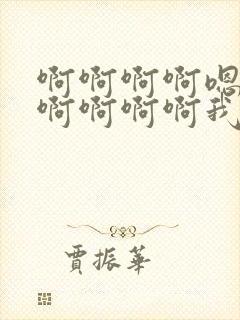 啊啊啊啊嗯
啊啊啊啊我
賈振華